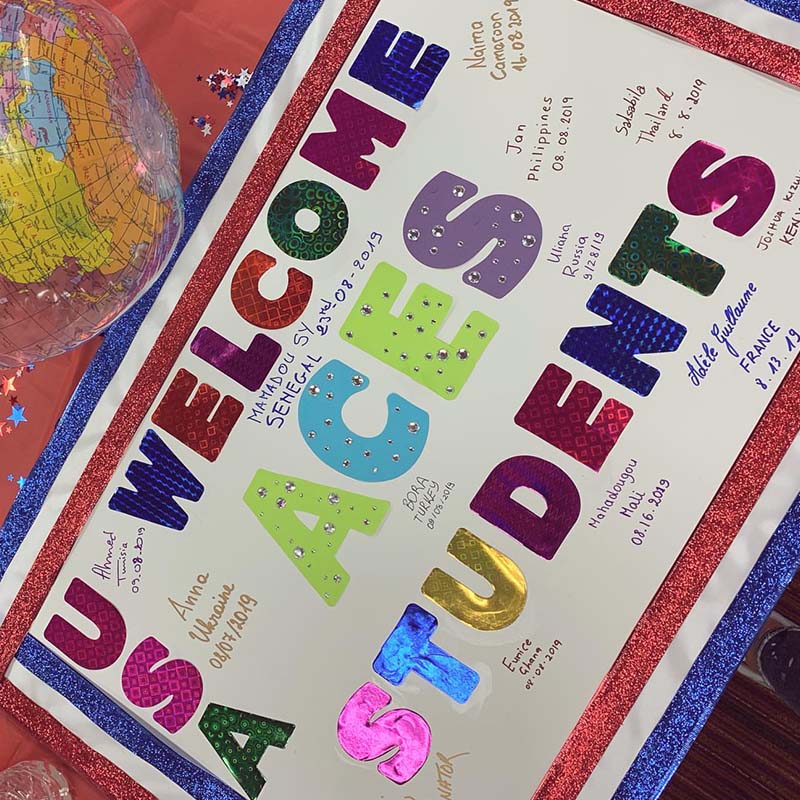 WELCOME
ACES
STUDENTS
USA
Naima
Cameroon
16.08 2019
Jan
Philippines
08.08.2019
Salsabila
Thailand
8.8.2019
JOSHUA
Uliana
Russia
9/28/19
MAMADOU SY
SENEGAL 23rd-08-2019
Adèle Guillaume
FRANCE
8.13.19
BORA
TURKEY
Mahadougou
Mali
08.16.2019
Ahmed
Tunisia
09.08.2019
Anna
Ukraine
Eunice
Ghana
08-08-2019